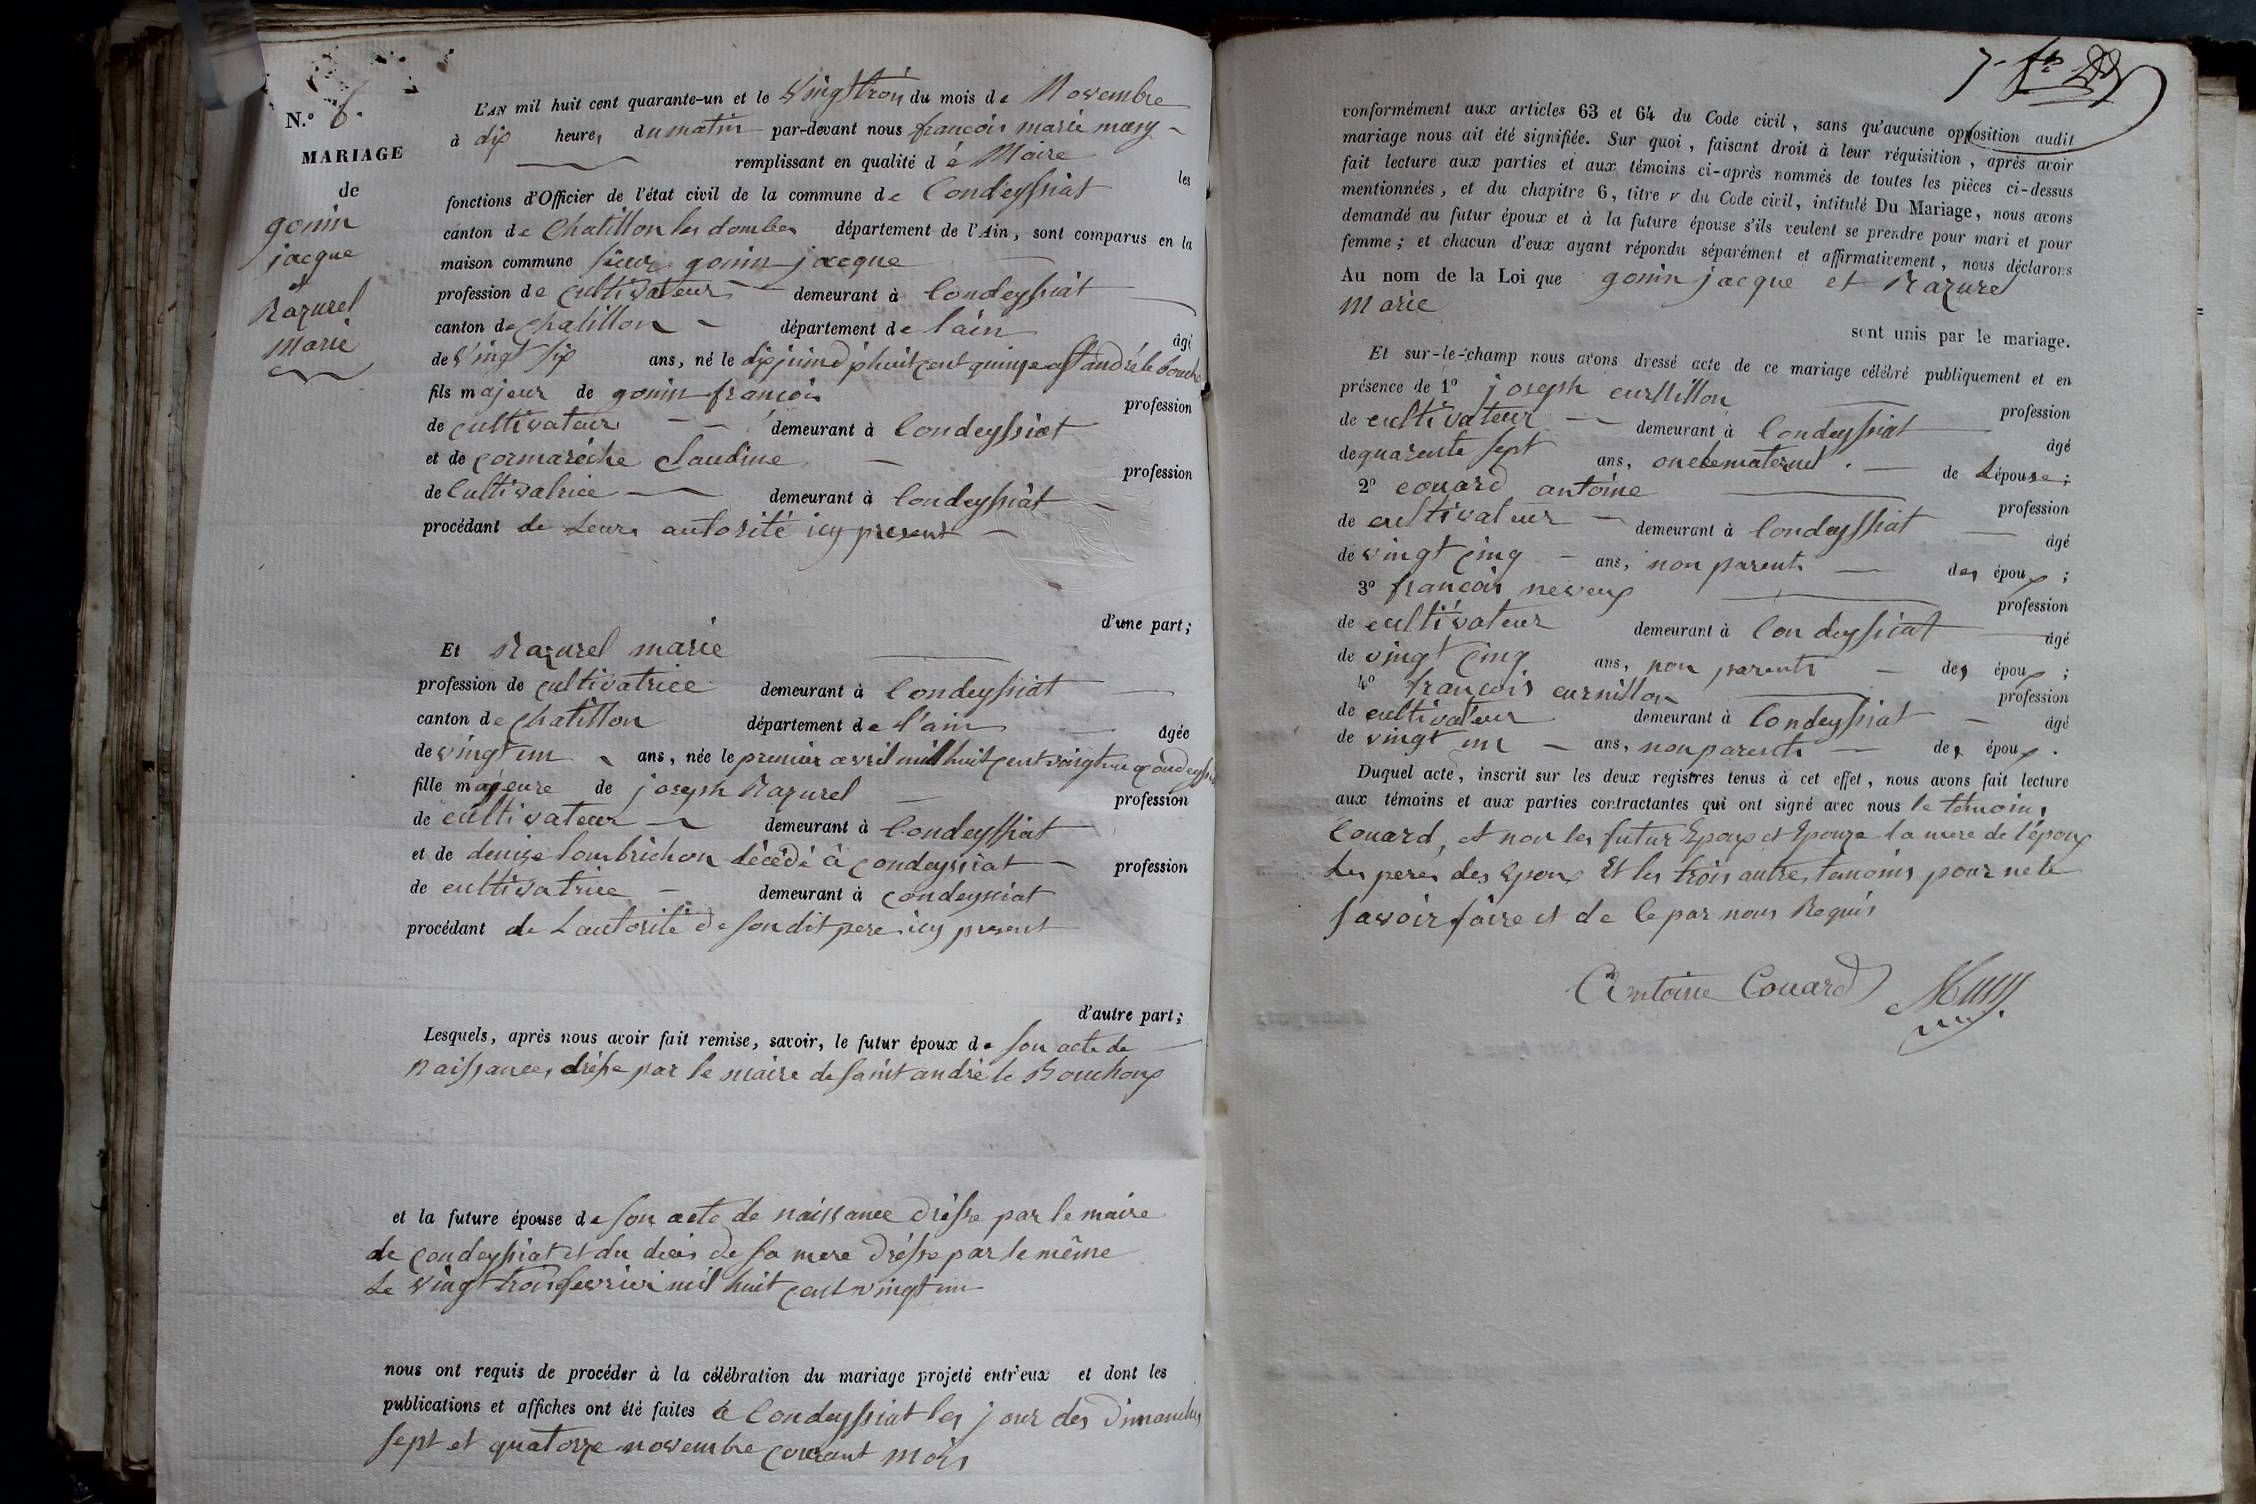 N.° 6.
MARIAGE
de
gonin
jacque
et
Razurel
Marie
L'AN mil huit cent quarante-un et le Vingt trois du mois de Novembre
à dix heures du matin par-devant nous françois marie
remplissant en qualité de Maire les
fonctions d'Officier de l'état civil de la commune de Condeyssiat
canton de Chatillon les dombes département de l'Ain, sont comparus en la
maison commune sieur gonin jacque
profession de cultivateur demeurant à Condeyssiat
canton de chatillon département de l'ain âgé
de Vingt six ans, né le dix juin dix huit cent quinze a St andré le bouchoux
fils majeur de gonin françois profession
de cultivateur demeurant à Condeyssiat
et de cormaréche Claudine profession
de Cultivatrice demeurant à Condeyssiat
procédant de Leurs autorité icy present
d'une part;
Et Razurel marie
profession de cultivatrice demeurant à Condeyssiat
canton de chatillon département de l'ain âgée
de vingt un ans, née le premier avril mil huit cent vingt
fille majeure de joseph Razurel profession
de cultivateur demeurant à Condeyssiat
et de denise Lombrichon décédé à Condeyssiat profession
de cultivatrice demeurant à condeyssiat
procédant de Lautorité de son dit pere icy present
d'autre part;
Lesquels, après nous avoir fait remise, savoir, le futur époux de son acte de
Naissances dréssé par le maire de saint andré le Bouchoux
et la future épouse de son acte de naissance dréssé par le maire
de condeyssiat et du decès de sa mere dréssé par le même
Le Vingt trois fevrier mil huit cent vingt un
nous ont requis de procéder à la célébration du mariage projeté entr'eux et dont les
publications et affiches ont été faites à Condeyssiat les jour des Dimanches
sept et quatorze novembre courant mois
conformément aux articles 63 et 64 du Code civil, sans qu'aucune opposition audit
mariage nous ait été signifiée. Sur quoi, faisant droit à leur réquisition, après avoir
fait lecture aux parties et aux témoins ci-après nommés de toutes les pièces ci-dessus
mentionnées, et du chapitre 6, titre v du Code civil, intitulé Du Mariage, nous avons
demandé au futur époux et à la future épouse s'ils veulent se prendre pour mari et pour
femme; et chacun d'eux ayant répondu séparément et affirmativement, nous déclarons
Au nom de la Loi que gonin jacque et Razurel
Marie
sont unis par le mariage.
Et sur-le-champ nous avons dressé acte de ce mariage célébré publiquement et en
présence de 1° joseph profession
de cultivateur demeurant à Condeyssiat âgé
de quarente sept ans, oncle maternel de Lépouse;
2° couard antoine profession
de cultivateur demeurant à Condeyssiat âgé
de vingt cinq ans, non parents des époux;
3° françois neveux profession
de cultivateur demeurant à Condeyssiat âgé
de vingt cinq ans, non parents des époux;
4° françois curnillon profession
de cultivateur demeurant à Condeyssiat âgé
de vingt un ans, non parents des époux.
Duquel acte, inscrit sur les deux registres tenus à cet effet, nous avons fait lecture
aux témoins et aux parties contractantes qui ont signé avec nous le témoins
Couard, et non les futur Epoux et Epouze la mere de l'époux
Les peres des Epoux Et les trois autres temoins pour ne le
savoir faire et de ce par nous Requis
Antoine Couard